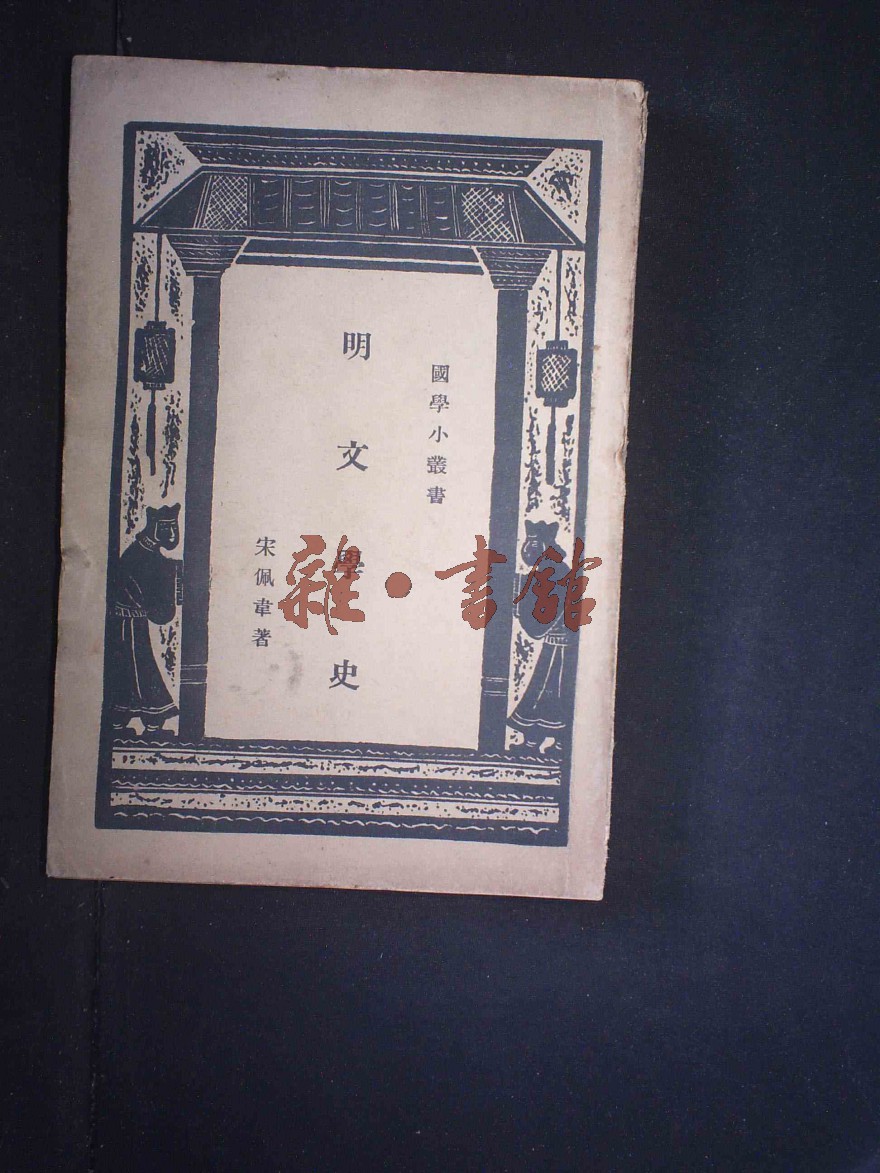 國學小叢書
明文學史
宋佩韋著
雜·書館